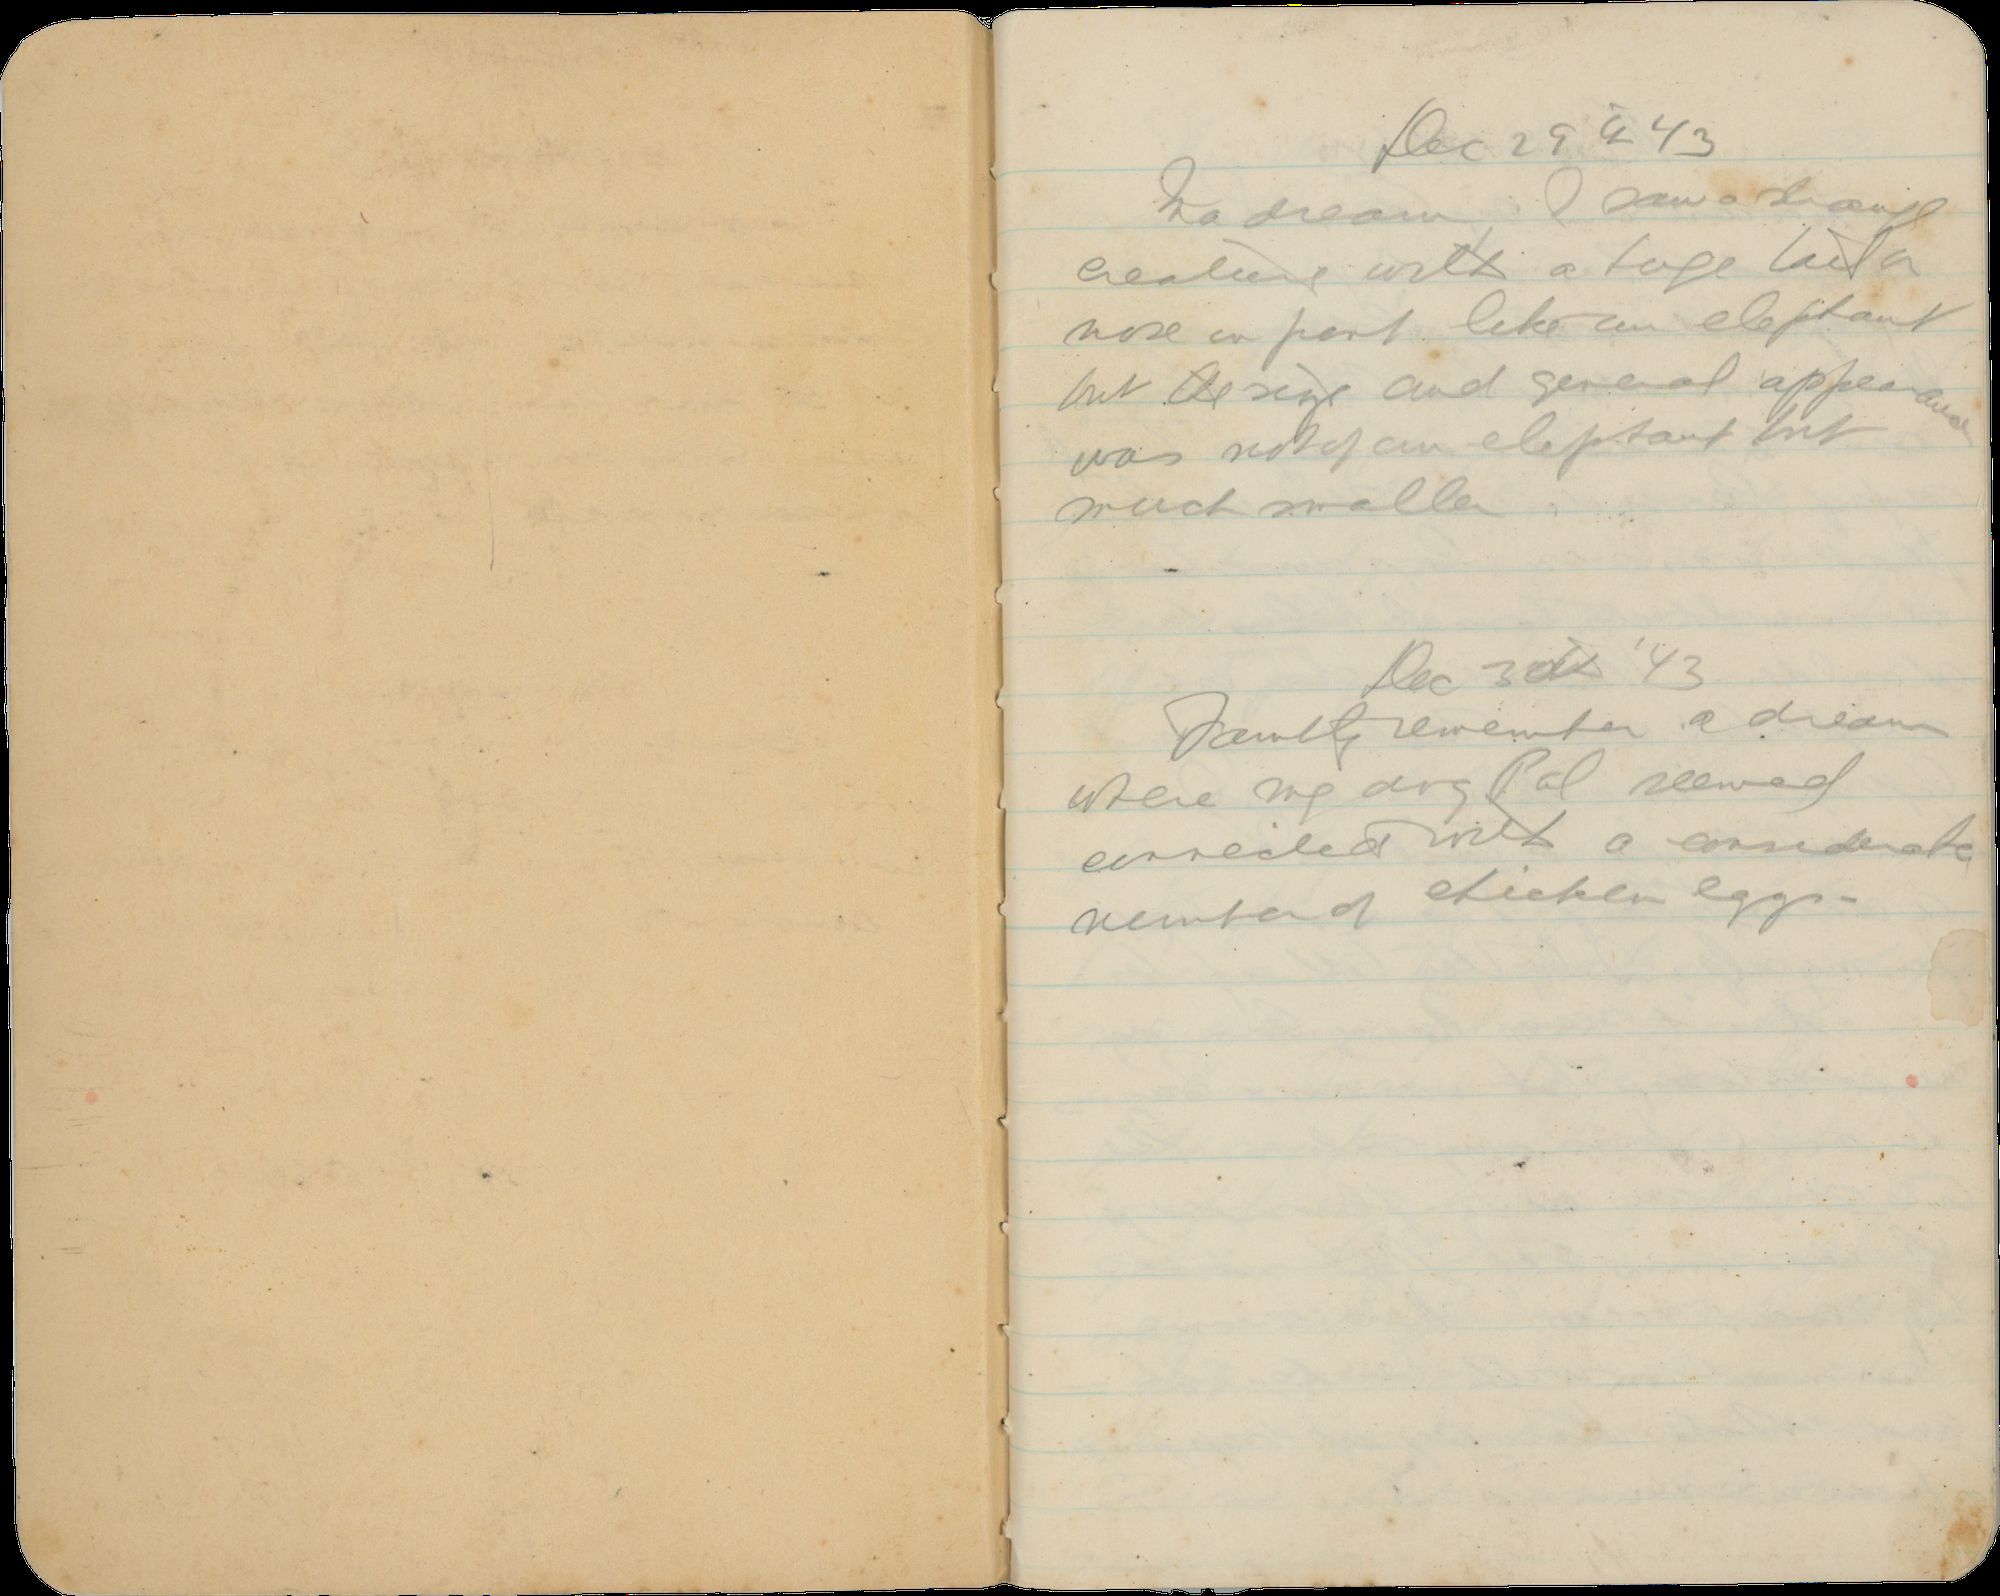 Dec 29th 43
In a dream I saw a strange
creature with a huge tail or
nose in part like an elephant
but the size and general appearance
was not of an elephant but
much smaller
Dec 30th '43
Faintly remember a dream
where my dog Pal seemed
connected with a considerate
number of chicken eggs-